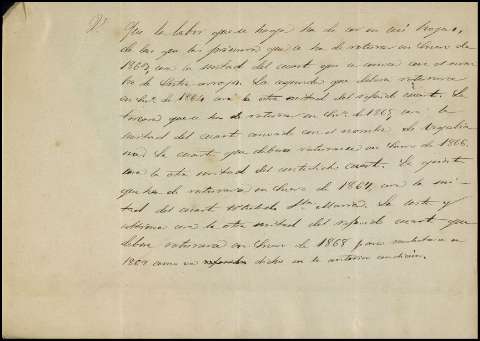 9ª Que la labor que se haga ha de ser en seis hojas,
de las que la primera que se ha de retornar en Enero de
1863, con la mitad del cuart que se conoce con el nom-
bre de . La segunda que debera retornarse
en En.º de 1864 con la otra mitad del referido cuart. La
tercera que se ha de retornar en En.º de 1865, con la
mitad del cuart conocido con el nombre de
. La cuarta que debera retornarse en Enero de 1866
con la otra mitad del antedicho cuart. La quinta
que ha de retornarse en Enero de 1867, con la mi-
tad del cuart titulado Sta. Maria. La sexta y
ultima con la otra mitad del referido cuart que
debe retornarse en Enero de 1868 para
1869 como va dicho en la anterior condicion.